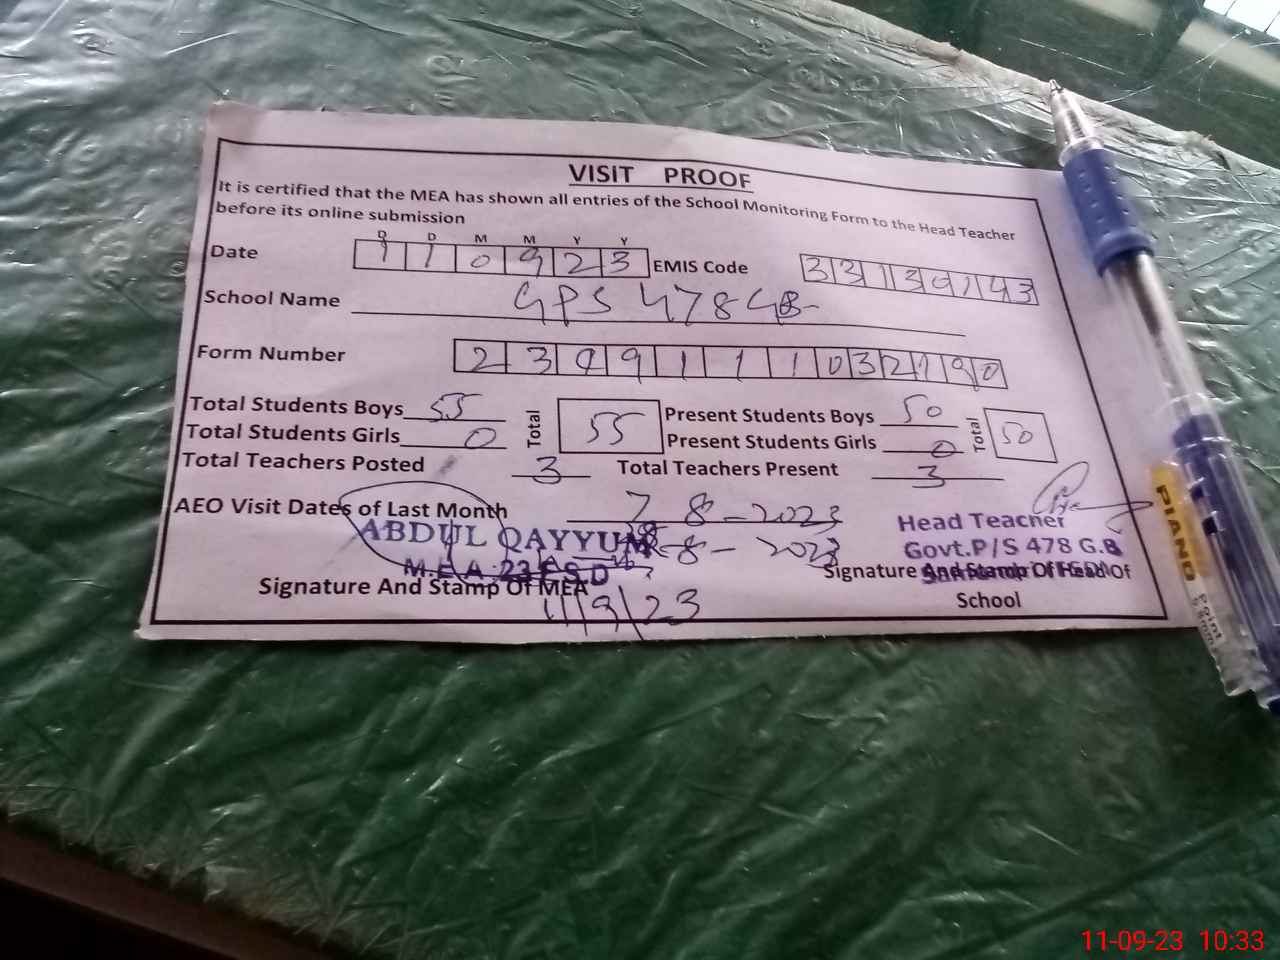 VISIT PROOF
It is certified that the MEA has shown all entries of the School Monitoring Form to the Head Teacher
before its online submission
D D M M Y Y
Date 1 1 0 9 2 3 EMIS Code 3 3 1 3 0 1 4 3
School Name GPS 478 GB
Form Number 2 3 0 9 1 1 1 0 3 2 1 9 0
Total Students Boys 55 Total 55 Present Students Boys 50 Total 50
Total Students Girls 0 Present Students Girls 0
Total Teachers Posted 3 Total Teachers Present 3
AEO Visit Dates of Last Month 7-8-2023
28-8-2023
ABDUL QAYYUM
M.E.A 23 F.S.D
Signature And Stamp Of MEA
11/9/23
Head Teacher
Govt.P/S 478 G.B
Signature And Stamp Of Head Of
School
PIANO
Point
11-09-23 10:33